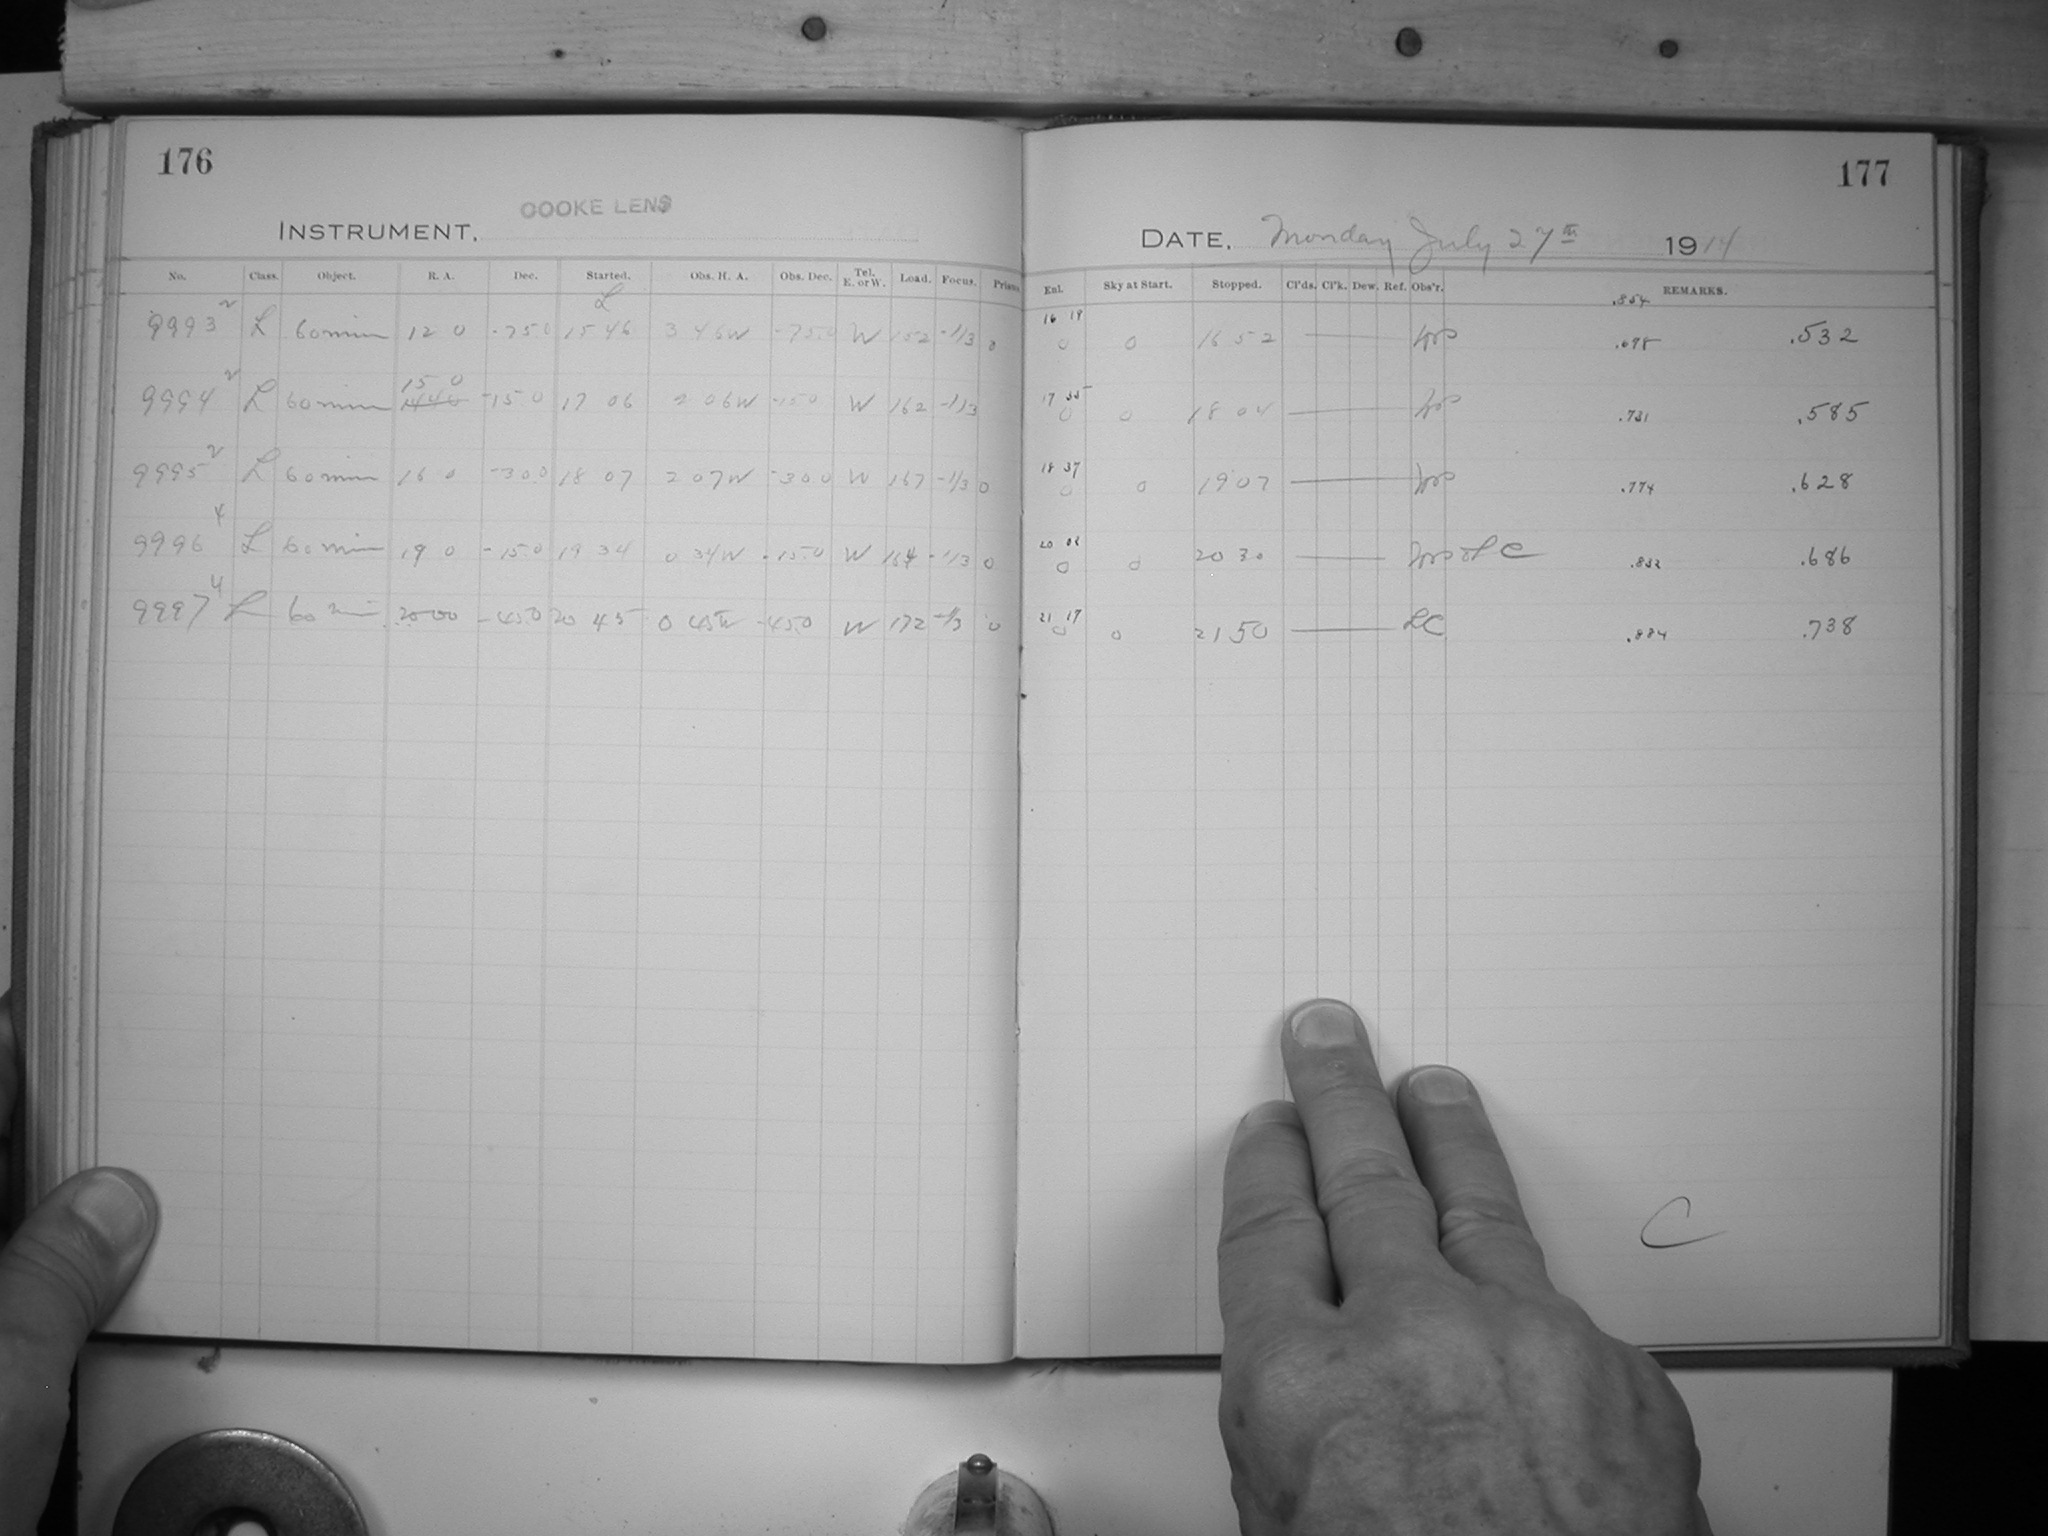 176
COOKE LENS
INSTRUMENT,
No. Class. Object. R. A. Dec. Started. Obs. H. A. Obs. Dec. Tel. E. or W. Load. Focus. Prism
9993 2 L 60 min 12 0 -75 0 L 15 46 3 46W -75 0 W 152 -1/3 0
9994 2 L 60 min 15 0 -15 0 17 06 2 06W -15 0 W 162 -1/3
9995 2 L 60 min 16 0 -30 0 18 07 2 07W -30 0 W 167 -1/3 0
9996 4 L 60 min 19 0 -15 0 19 34 0 34W -15 0 W 164 -1/3 0
9997 4 L 60 min 20 00 -45 0 20 45 0 45W -45 0 W 172 -1/3 0
177
DATE, Monday July 27th 1914
Enl. Sky at Start. Stopped. Cl'ds. Cl'k. Dew. Ref. Obs'r. REMARKS.
.854
16 19 0 0 16 52 .678 .532
17 35 0 0 18 04 .731 .585
18 37 0 0 19 07 .774 .628
20 02 0 0 20 30 LC .832 .686
21 17 0 0 21 50 LC .884 .738
C